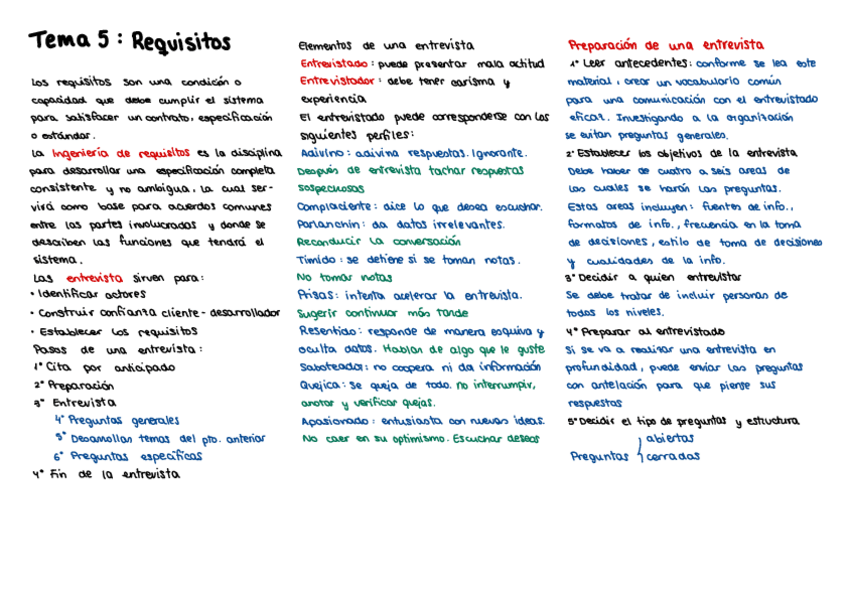 Tema 5: Requisitos
Los requisitos son una condición o
capacidad que debe cumplir el sistema
para satisfacer un contrato, especificación
o estándar.
La Ingeniería de requisitos es la disciplina
para desarrollar una especificación completa
consistente y no ambigua, la cual ser-
virá como base para acuerdos comunes
entre las partes involucradas y donde se
describen las funciones que tendrá el
sistema.
Las entrevista sirven para:
• Identificar actores
• Construir confianza cliente - desarrollador
• Establecer los requisitos
Pasos de una entrevista:
1° Cita por anticipado
2° Preparación
3° Entrevista
4° Preguntas generales
5° Desarrollan temas del pto. anterior
6° Preguntas específicas
4° Fin de la entrevista
Elementos de una entrevista
Entrevistado: puede presentar mala actitud
Entrevistador: debe tener carisma y
experiencia
El entrevistado puede corresponderse con los
siguientes perfiles:
Adivino: adivina respuestas. Ignorante.
Después de entrevista tachar respuestas
sospechosas
Complaciente: dice lo que desea escuchar.
Parlanchín: da datos irrelevantes.
Reconducir la conversación
Tímido: se detiene si se toman notas.
No tomar notas
Prisas: intenta acelerar la entrevista.
Sugerir continuar más tarde
Resentido: responde de manera esquiva y
oculta datos. Hablan de algo que le guste
Saboteador: no coopera ni da información
Quejica: se queja de todo. no interrumpir,
anotar y verificar quejas.
Apasionado: entusiasta con nuevas ideas.
No caer en su optimismo. Escuchar deseos
Preparación de una entrevista
1° Leer antecedentes: conforme se lea este
material, crear un vocabulario común
para una comunicación con el entrevistado
eficaz. Investigando a la organización
se evitan preguntas generales.
2° Establecer los objetivos de la entrevista
Debe haber de cuatro a seis areas de
las cuales se harán las preguntas.
Estas areas incluyen: fuentes de info.,
formatos de info., frecuencia en la toma
de decisiones, estilo de toma de decisiones
y cualidades de la info.
3° Decidir a quien entrevistar
Se debe tratar de incluir personas de
todos los niveles.
4° Preparar al entrevistado
Si se va a realizar una entrevista en
profundidad, puede enviar las preguntas
con antelación para que piense sus
respuestas
5° Decidir el tipo de preguntas y estructura
abiertas
Preguntas
cerradas